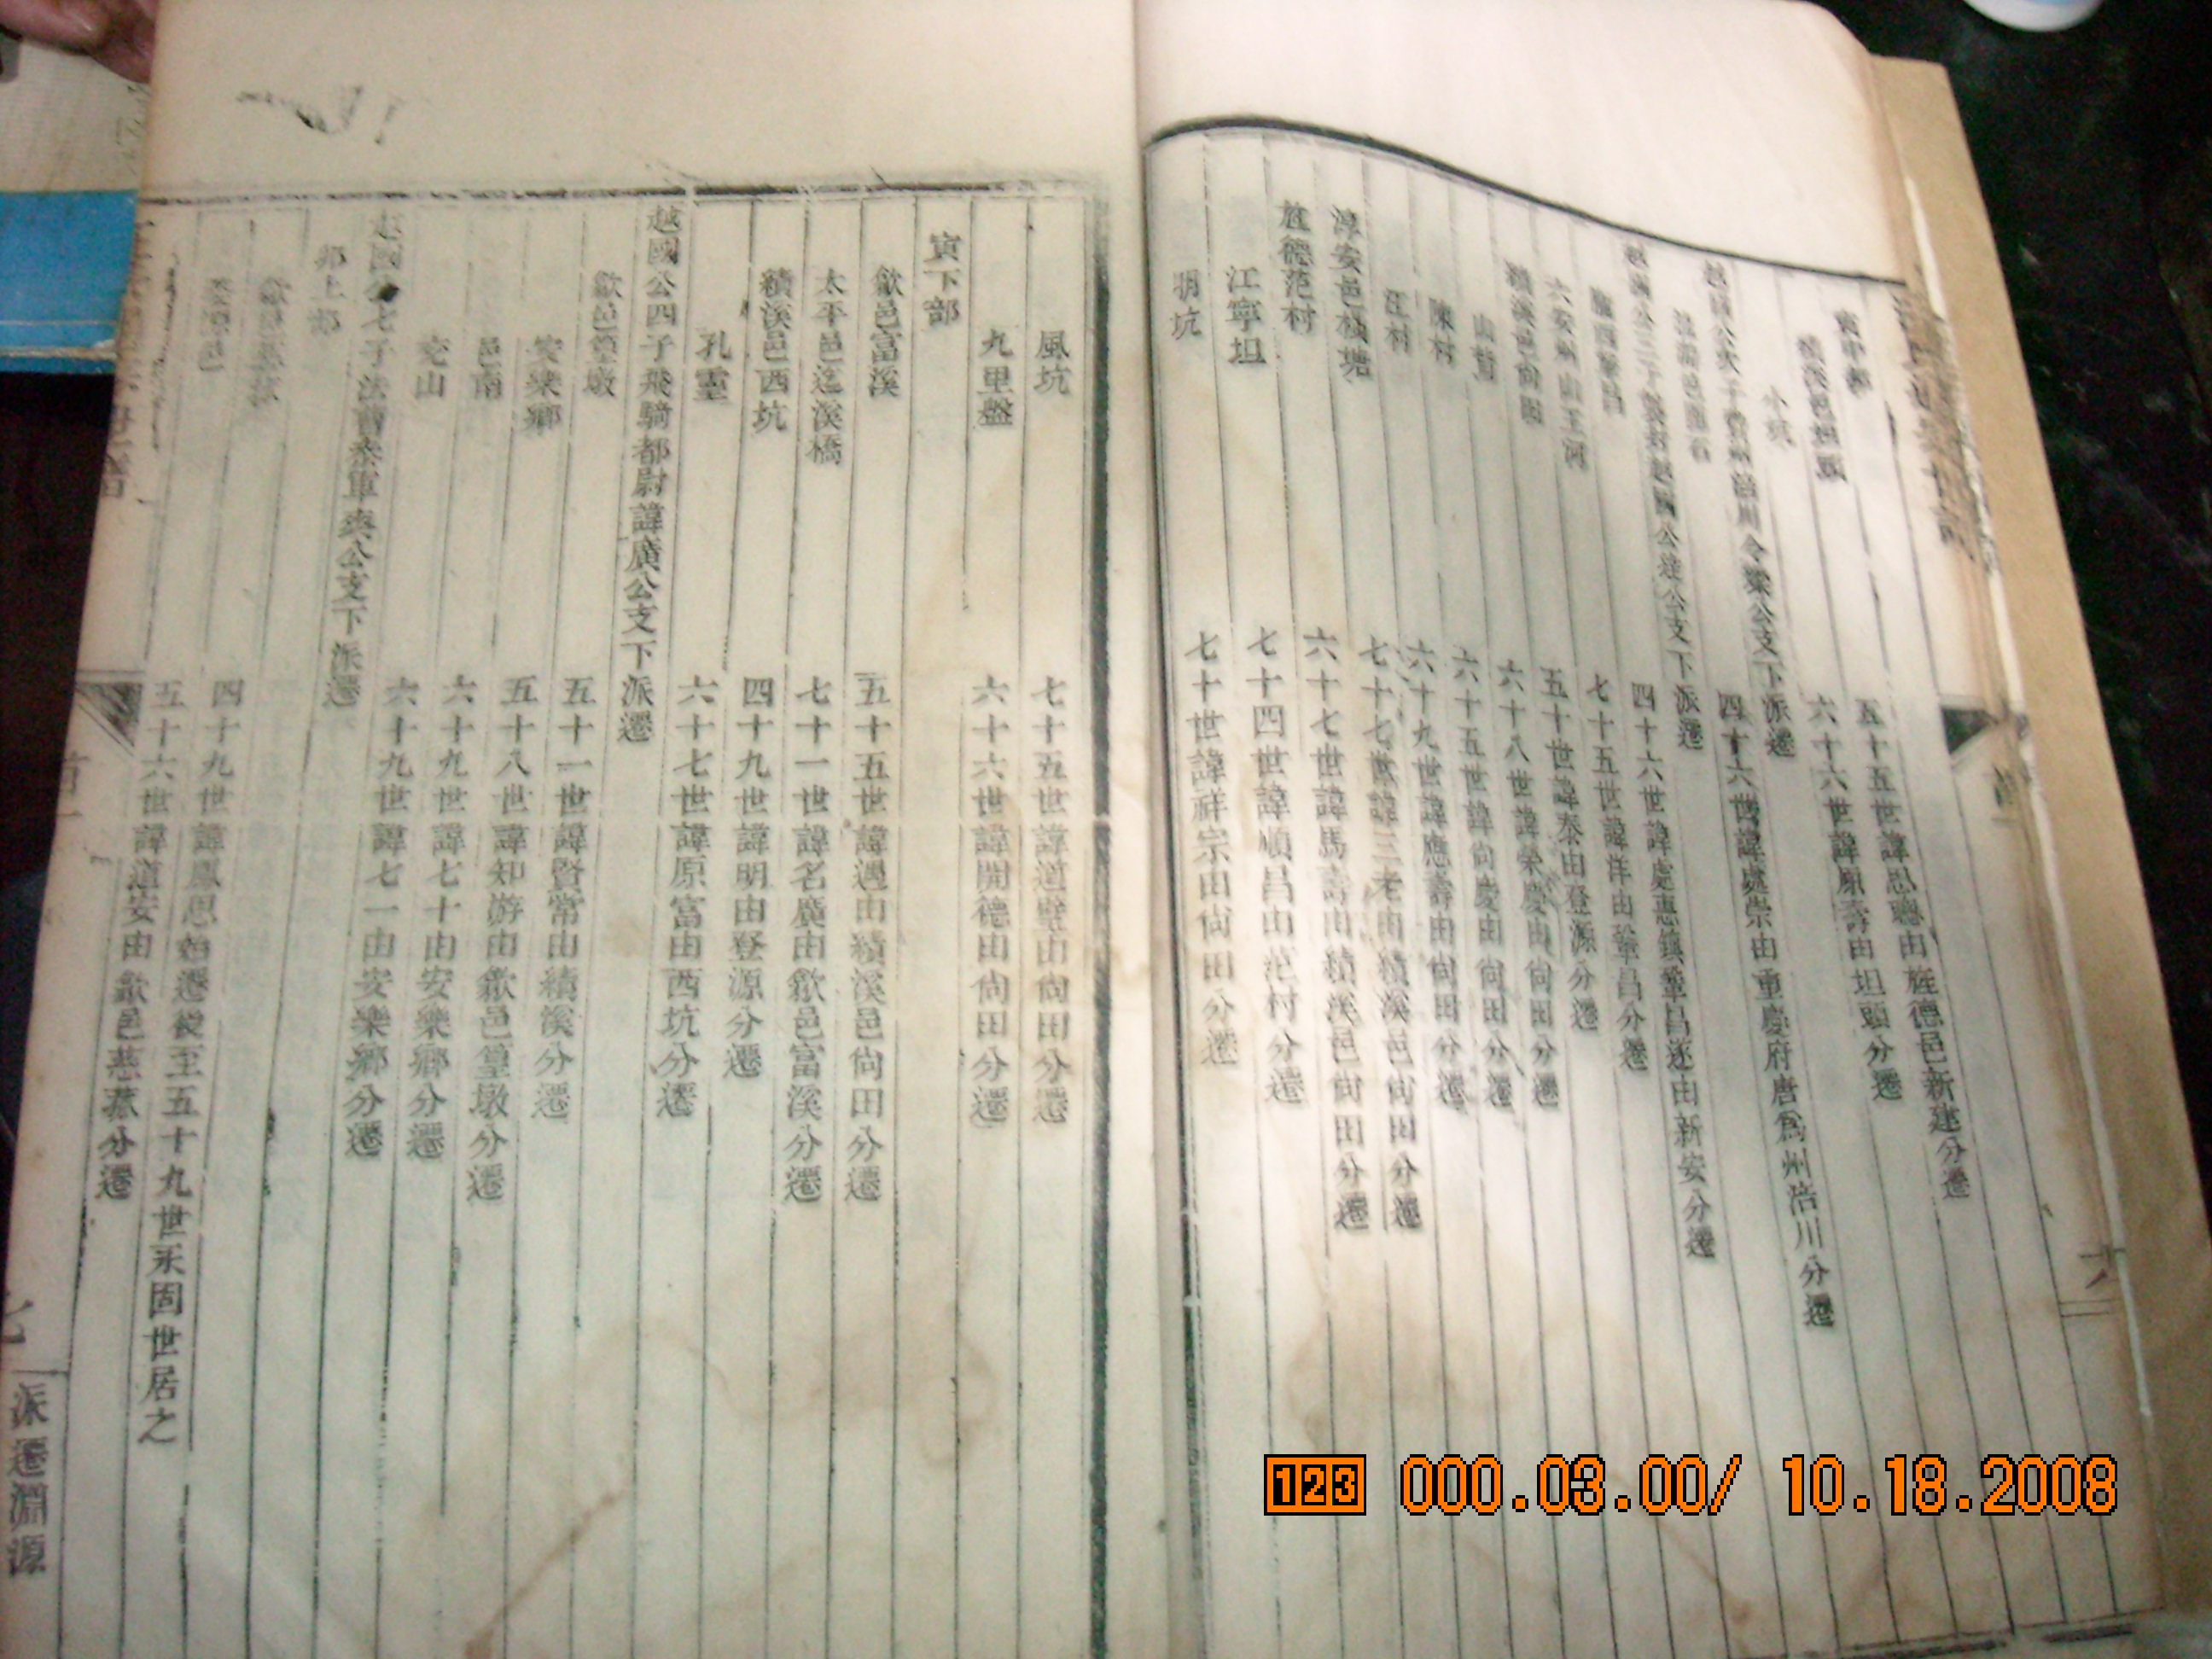 寅中部
績溪邑坦頭 五十五世諱思聰由旌德邑新建分遷
小坑 六十六世諱原壽由坦頭分遷
越國公次子 州浯川令璨公支下派遷
四十六世諱處崇由重慶府唐為州浯川分遷
越國公三子襲封越國公達公支下派遷
四十六世諱處惠鎮鞏昌遂由新安分遷
隴西鞏昌 七十五世諱洋由鞏昌分遷
六安州山王河 五十世諱泰由登源分遷
績溪邑尙田 六十八世諱榮慶由尙田分遷
六十五世諱尙慶由尙田分遷
陳村 六十九世諱應壽由尙田分遷
汪村 七十七世諱三老由績溪邑尙田分遷
淳安邑 塘 六十七世諱馬壽由績溪邑尙田分遷
旌德范村 七十四世諱順昌由范村分遷
江寧坦 七十世諱祥宗由尙田分遷
明坑
風坑 七十五世諱道 由尙田分遷
九里盤 六十六世諱開德由尙田分遷
寅下部
歙邑富溪 五十五世諱遇由績溪邑尙田分遷
太平邑 溪橋 七十一世諱名廣由歙邑富溪分遷
績溪邑西坑 四十九世諱明由登源分遷
孔靈 六十七世諱原富由西坑分遷
越國公四子飛騎都尉諱廣公支下派遷
歙邑篁墩 五十一世諱賢常由績溪分遷
安樂鄉 五十八世諱知游由歙邑篁墩分遷
邑南 六十九世諱七十由安樂鄉分遷
交山 六十九世諱七一由安樂鄉分遷
越國公七子法曹參軍爽公支下派遷
卯上部
四十九世諱鳳思始遷後至五十九世永固世居之
五十六世諱道安由歙邑慈菰分遷
七
派遷淵源
六
123 000.03.00/ 10.18.2008